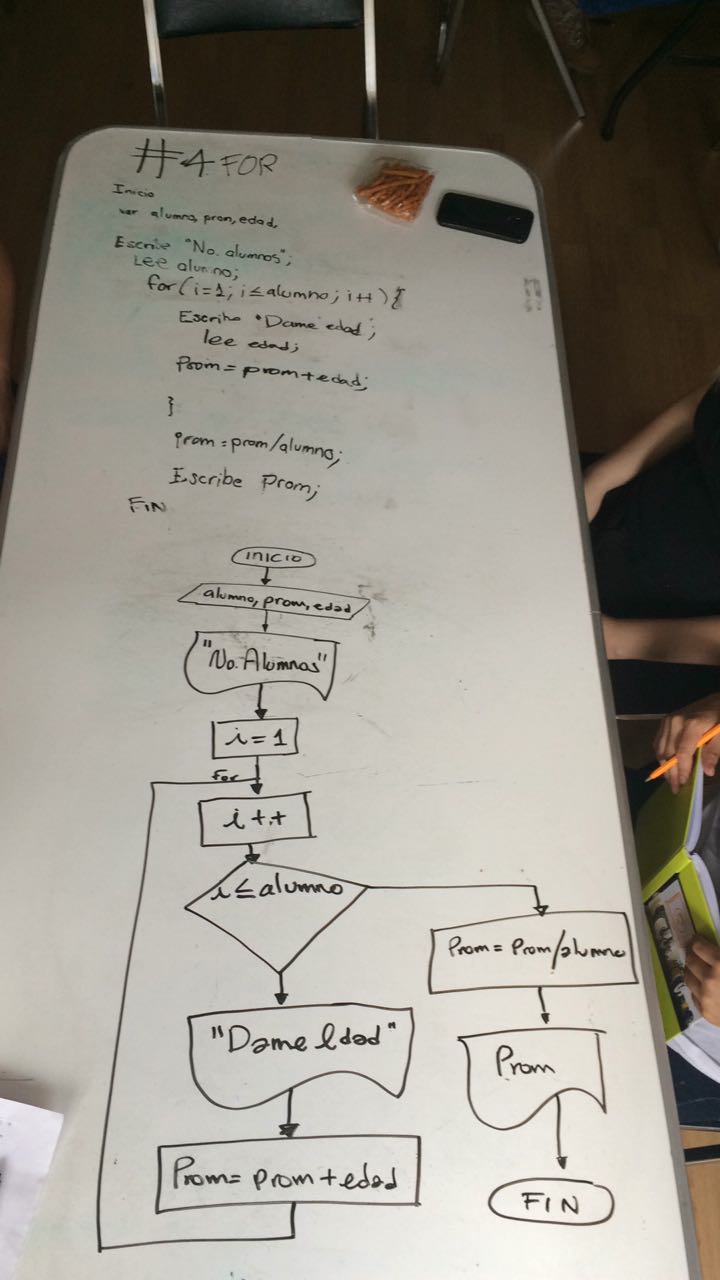 #4 FOR
Inicio
var alumno, prom, edad,
Escribe "No. alumnos";
Lee alumno;
for(i=1; i≤alumno; i++){
Escribe "Dame edad;
lee edad;
Prom = prom+edad;
}
Prom = prom/alumno;
Escribe Prom;
FIN
INICIO
alumno, prom, edad
"No. Alumnos"
i=1
for
i++
i≤alumno
Prom = Prom/alumno
"Dame Edad"
Prom
Prom= prom+edad
FIN